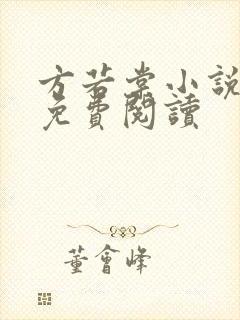 方若棠小說
免費閱讀
董會峰